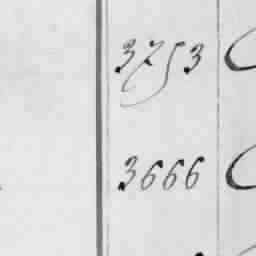 3753
3666